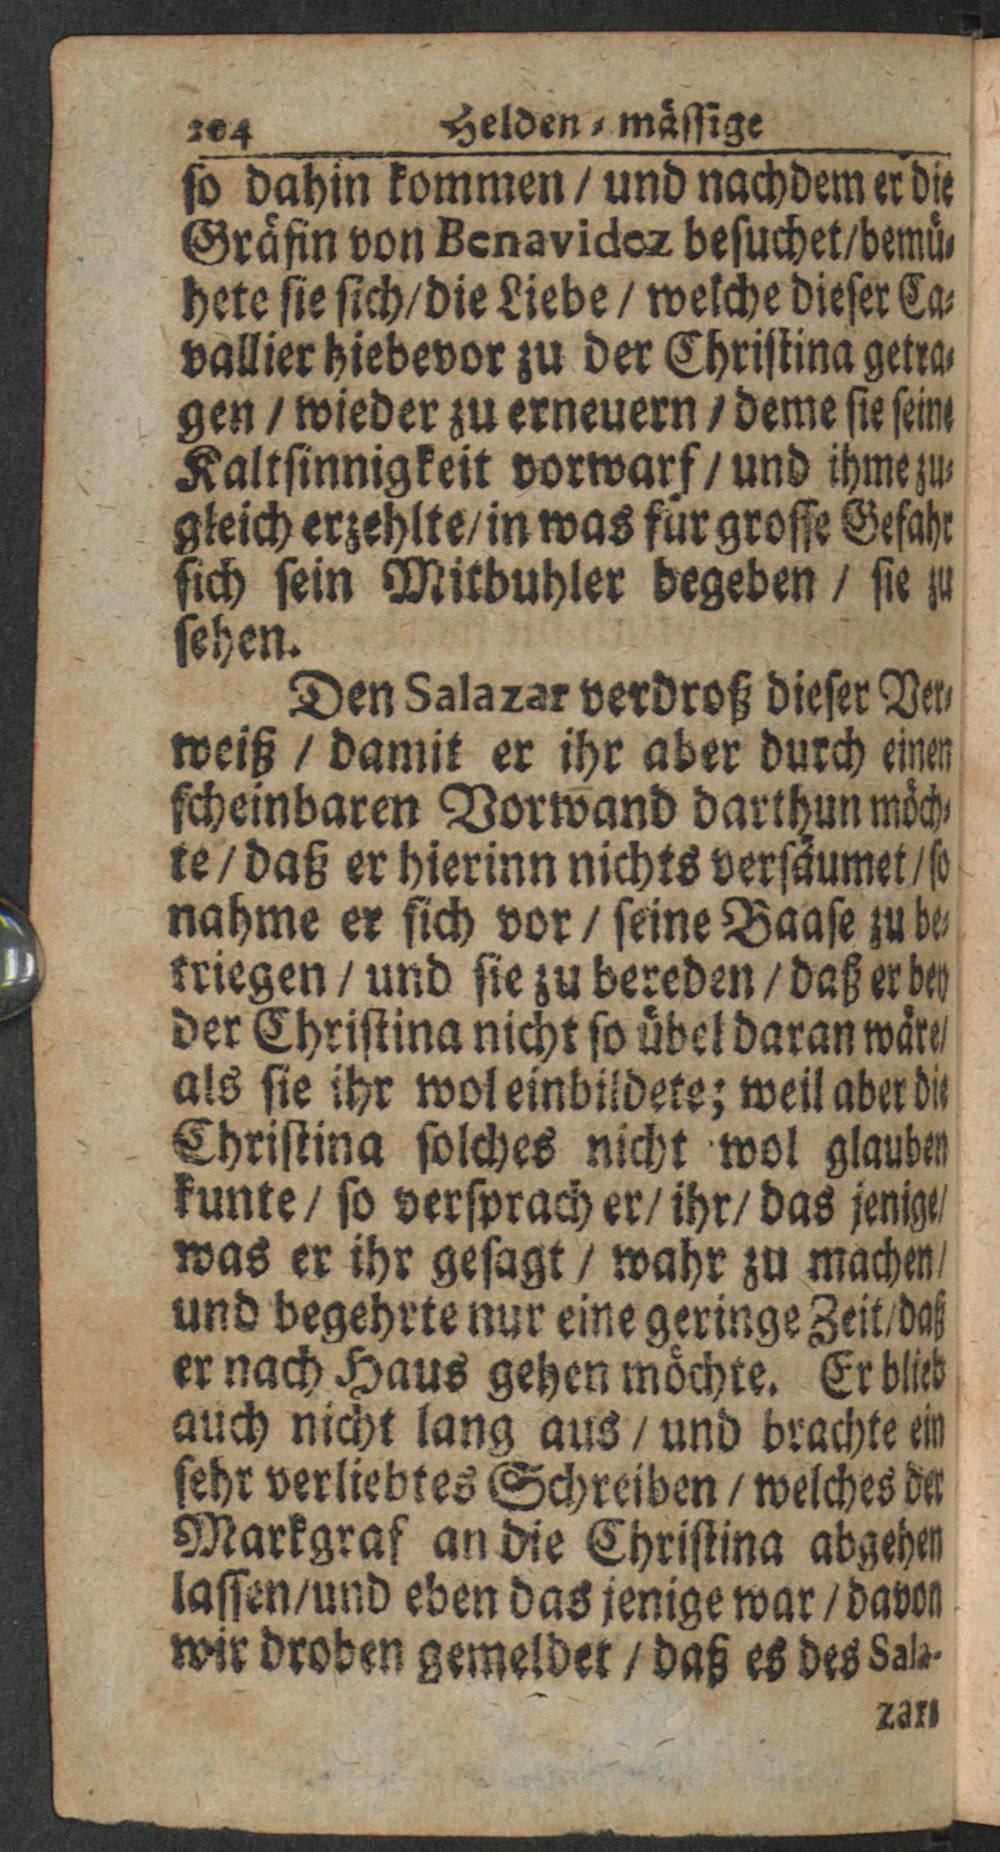 104 Helden-mässige
so dahin kommen / und nachdem er die
Gräfin von Benavidez besuchet/bemü-
hete sie sich/die Liebe / welche dieser Ca-
vallier hiebevor zu der Christina getra-
gen / wieder zu erneuern / deme sie seine
Kaltsinnigkeit vorwarf / und ihme zu-
gleich erzehlte/in was für grosse Gefahr
sich sein Mitbuhler begeben / sie zu
sehen.
Den Salazar verdroß dieser Ver-
weiß / damit er ihr aber durch einen
scheinbaren Vorwand darthun möch-
te / daß er hierinn nichts versäumet / so
nahme er sich vor / seine Baase zu be-
triegen / und sie zu bereden / daß er bey
der Christina nicht so übel daran wäre/
als sie ihr wol einbildete; weil aber die
Christina solches nicht wol glauben
kunte / so versprach er/ ihr/ das jenige/
was er ihr gesagt / wahr zu machen/
und begehrte nur eine geringe Zeit/daß
er nach Haus gehen möchte. Er blieb
auch nicht lang aus / und brachte ein
sehr verliebtes Schreiben / welches der
Markgraf an die Christina abgehen
lassen/und eben das jenige war / davon
wir droben gemeldet / daß es des Sala-
zars